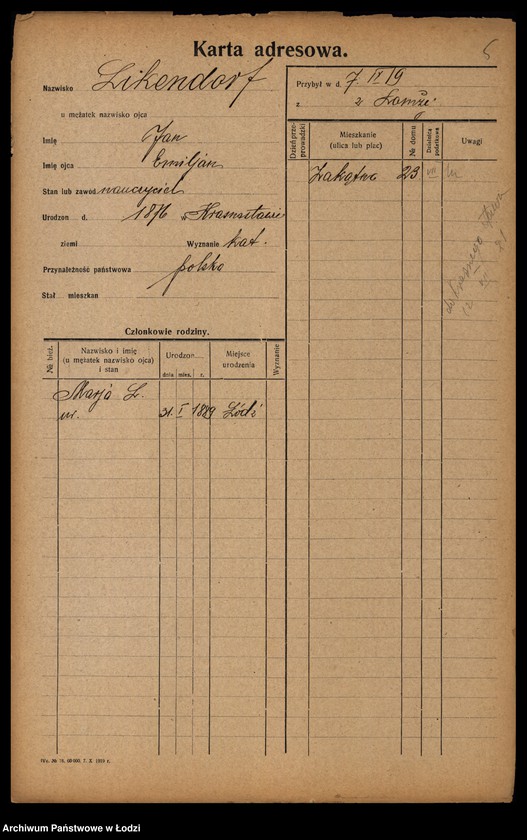 Karta adresowa.
5
Nazwisko Likendorf
u mężatek nazwisko ojca
Imię Jan
Imię ojca Emiljan
Stan lub zawód nauczyciel
Urodzon d. 1876 w Krasnostawie
ziemi Wyznanie kat.
Przynależność państwowa polska
Stał mieszkan
Przybył w d. 7. IX 19
z z Łomży
Dzień przeprowadzki
Mieszkanie
(ulica lub plac)
№ domu
Dzielnica podatkowa
Uwagi
Zakątna 23 VII
12
Członkowie rodziny.
№ bież.
Nazwisko i imię
(u mężatek nazwisko ojca)
i stan
Urodzon
dnia mies. r.
Miejsce
urodzenia
Wyznanie
Marja L.
21. I 1889 Łódź
60 000. 7. X. 1919 r.
Archiwum Państwowe w Łodzi